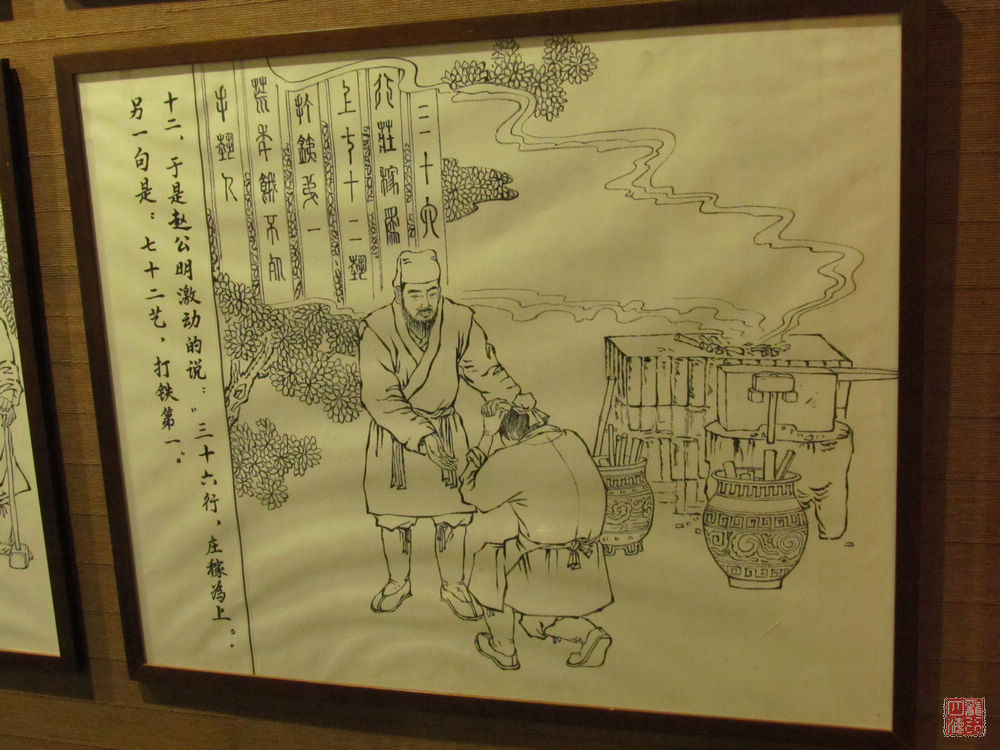 三十六
行莊稼為
上七十二藝
打鐵第一
荒年餓不死
手藝人
十二、于是赵公明激动的说："三十六行，庄稼为上。"
另一句是：七十二艺，打铁第一。"